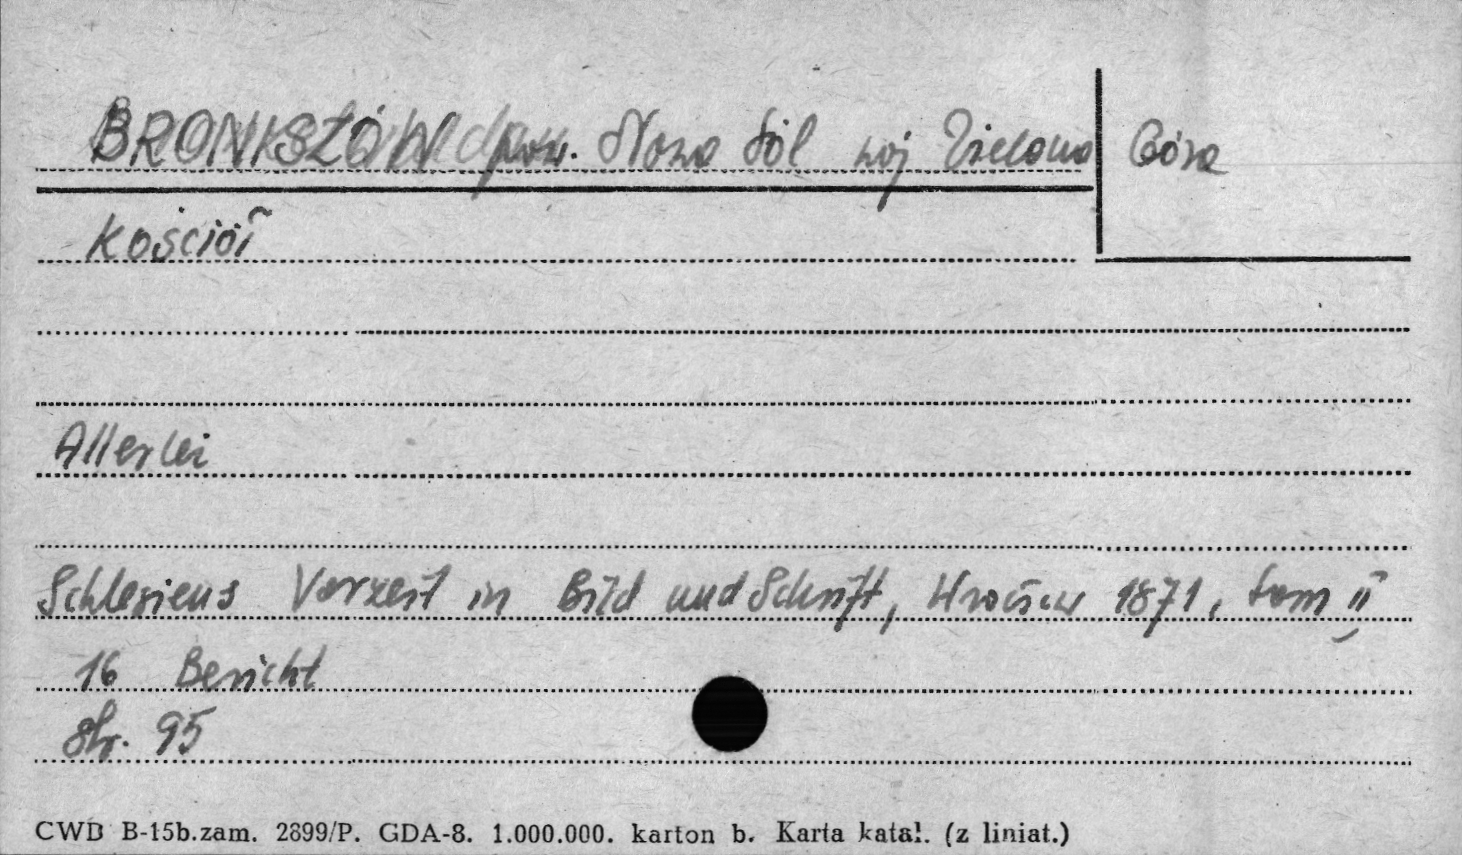 BRONISZÓW pow. Nowa Sól woj Zielona Góra
Kościół
Allerlei
Schlesiens Vorzeit in Bild und Schrift, Wrocław 1871, tom II
16 Bericht
Str. 95
CWD B-15b.zam. 2899/P. GDA-8. 1.000.000. karton b. Karta katal. (z liniat.)